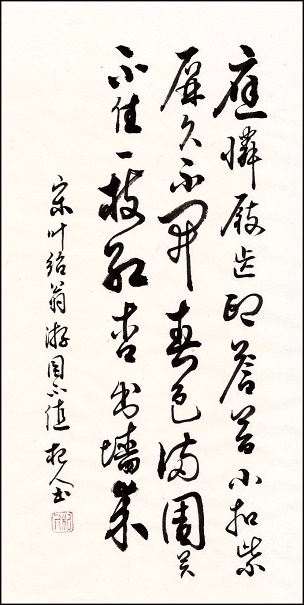 應憐屐齿印蒼苔小扣柴
扉久不開春色满園关
不住一枝红杏出墙来
宋叶绍翁游园不值书